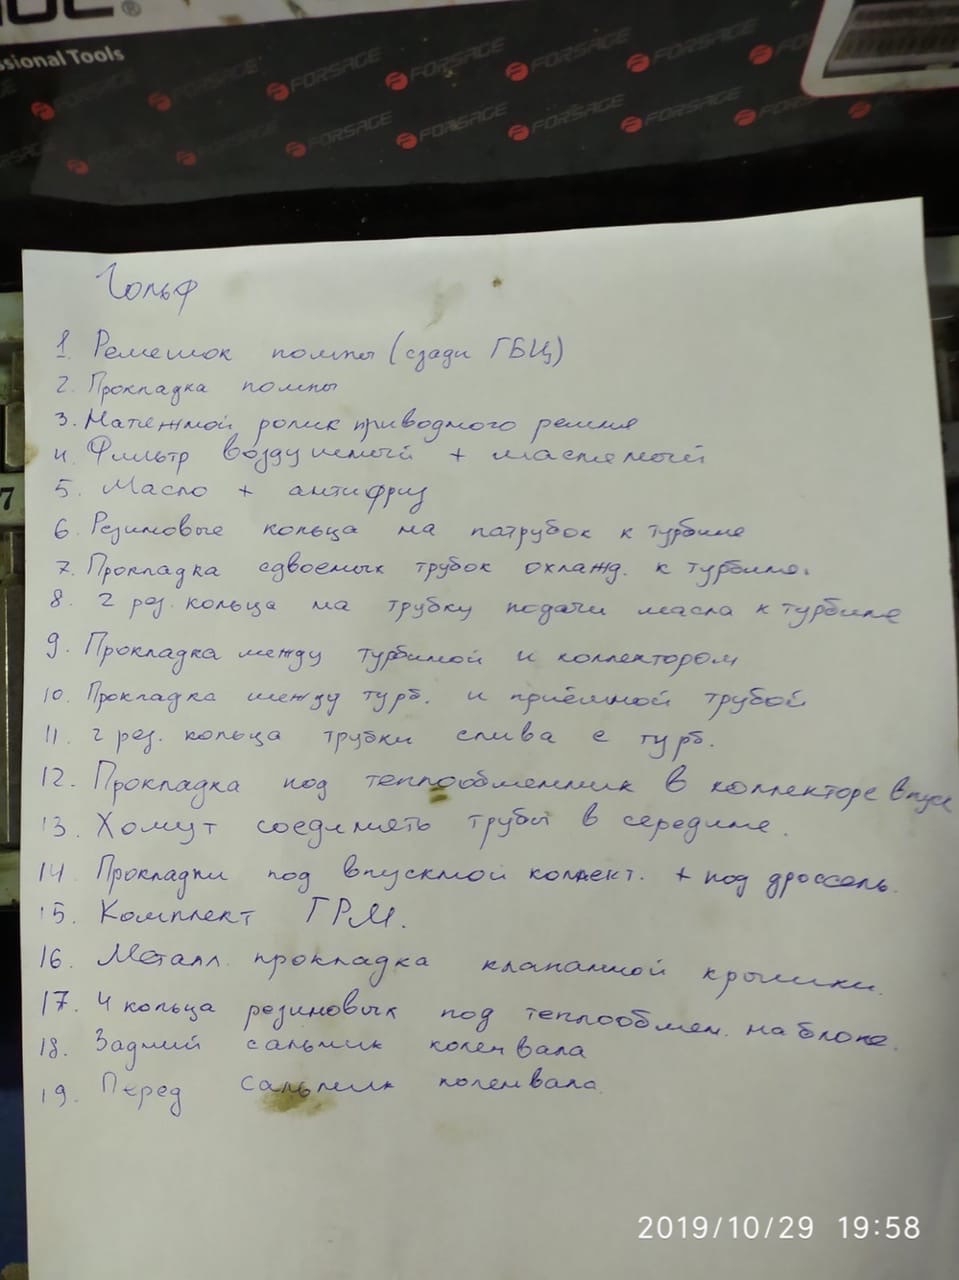 ssional Tools
FORSAGE FORSAGE FORSAGE FORSAGE
FORSAGE FORSAGE FORSAGE FORSAGE
Гольф
1. Ремешок помпы (сзади ГБЦ)
2. Прокладка помпы
3. Натежной ролик приводного ремня
4. Фильтр воздушный + масленый
5. Масло + антифриз
6. Резиновые кольца на патрубок к турбине
7. Прокладка сдвоеных трубок охлажд. к турбине.
8. 2 рез. кольца на трубку подачи масла к турбине
9. Прокладка между турбиной и коллектором
10. Прокладка между турб. и приёмной трубой
11. 2 рез. кольца трубки слива с турб.
12. Прокладка под теплообменник в коллекторе впуск
13. Хомут соединять трубы в середине.
14. Прокладки под впускной коллект. + под дроссель.
15. Комплект ГРМ.
16. Металл. прокладка клапанной крышки.
17. 4 кольца резиновых под теплообмен. на блоке.
18. Задний сальник коленвала
19. Перед сальник коленвала.
2019/10/29 19:58